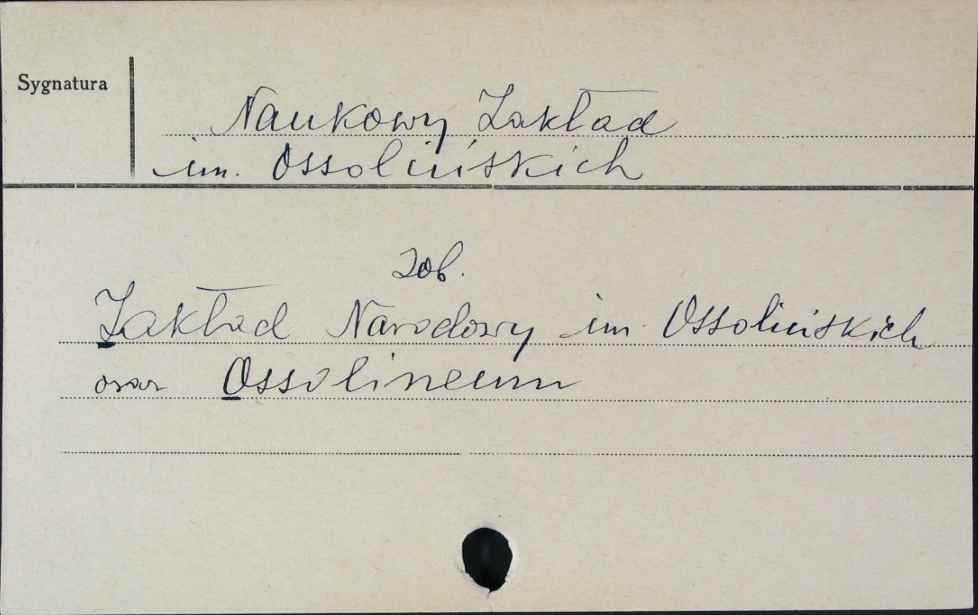 Sygnatura
Naukowy Zakład
im. Ossolińskich
Zob.
Zakład Narodowy im. Ossolińskich
oraz Ossolineum